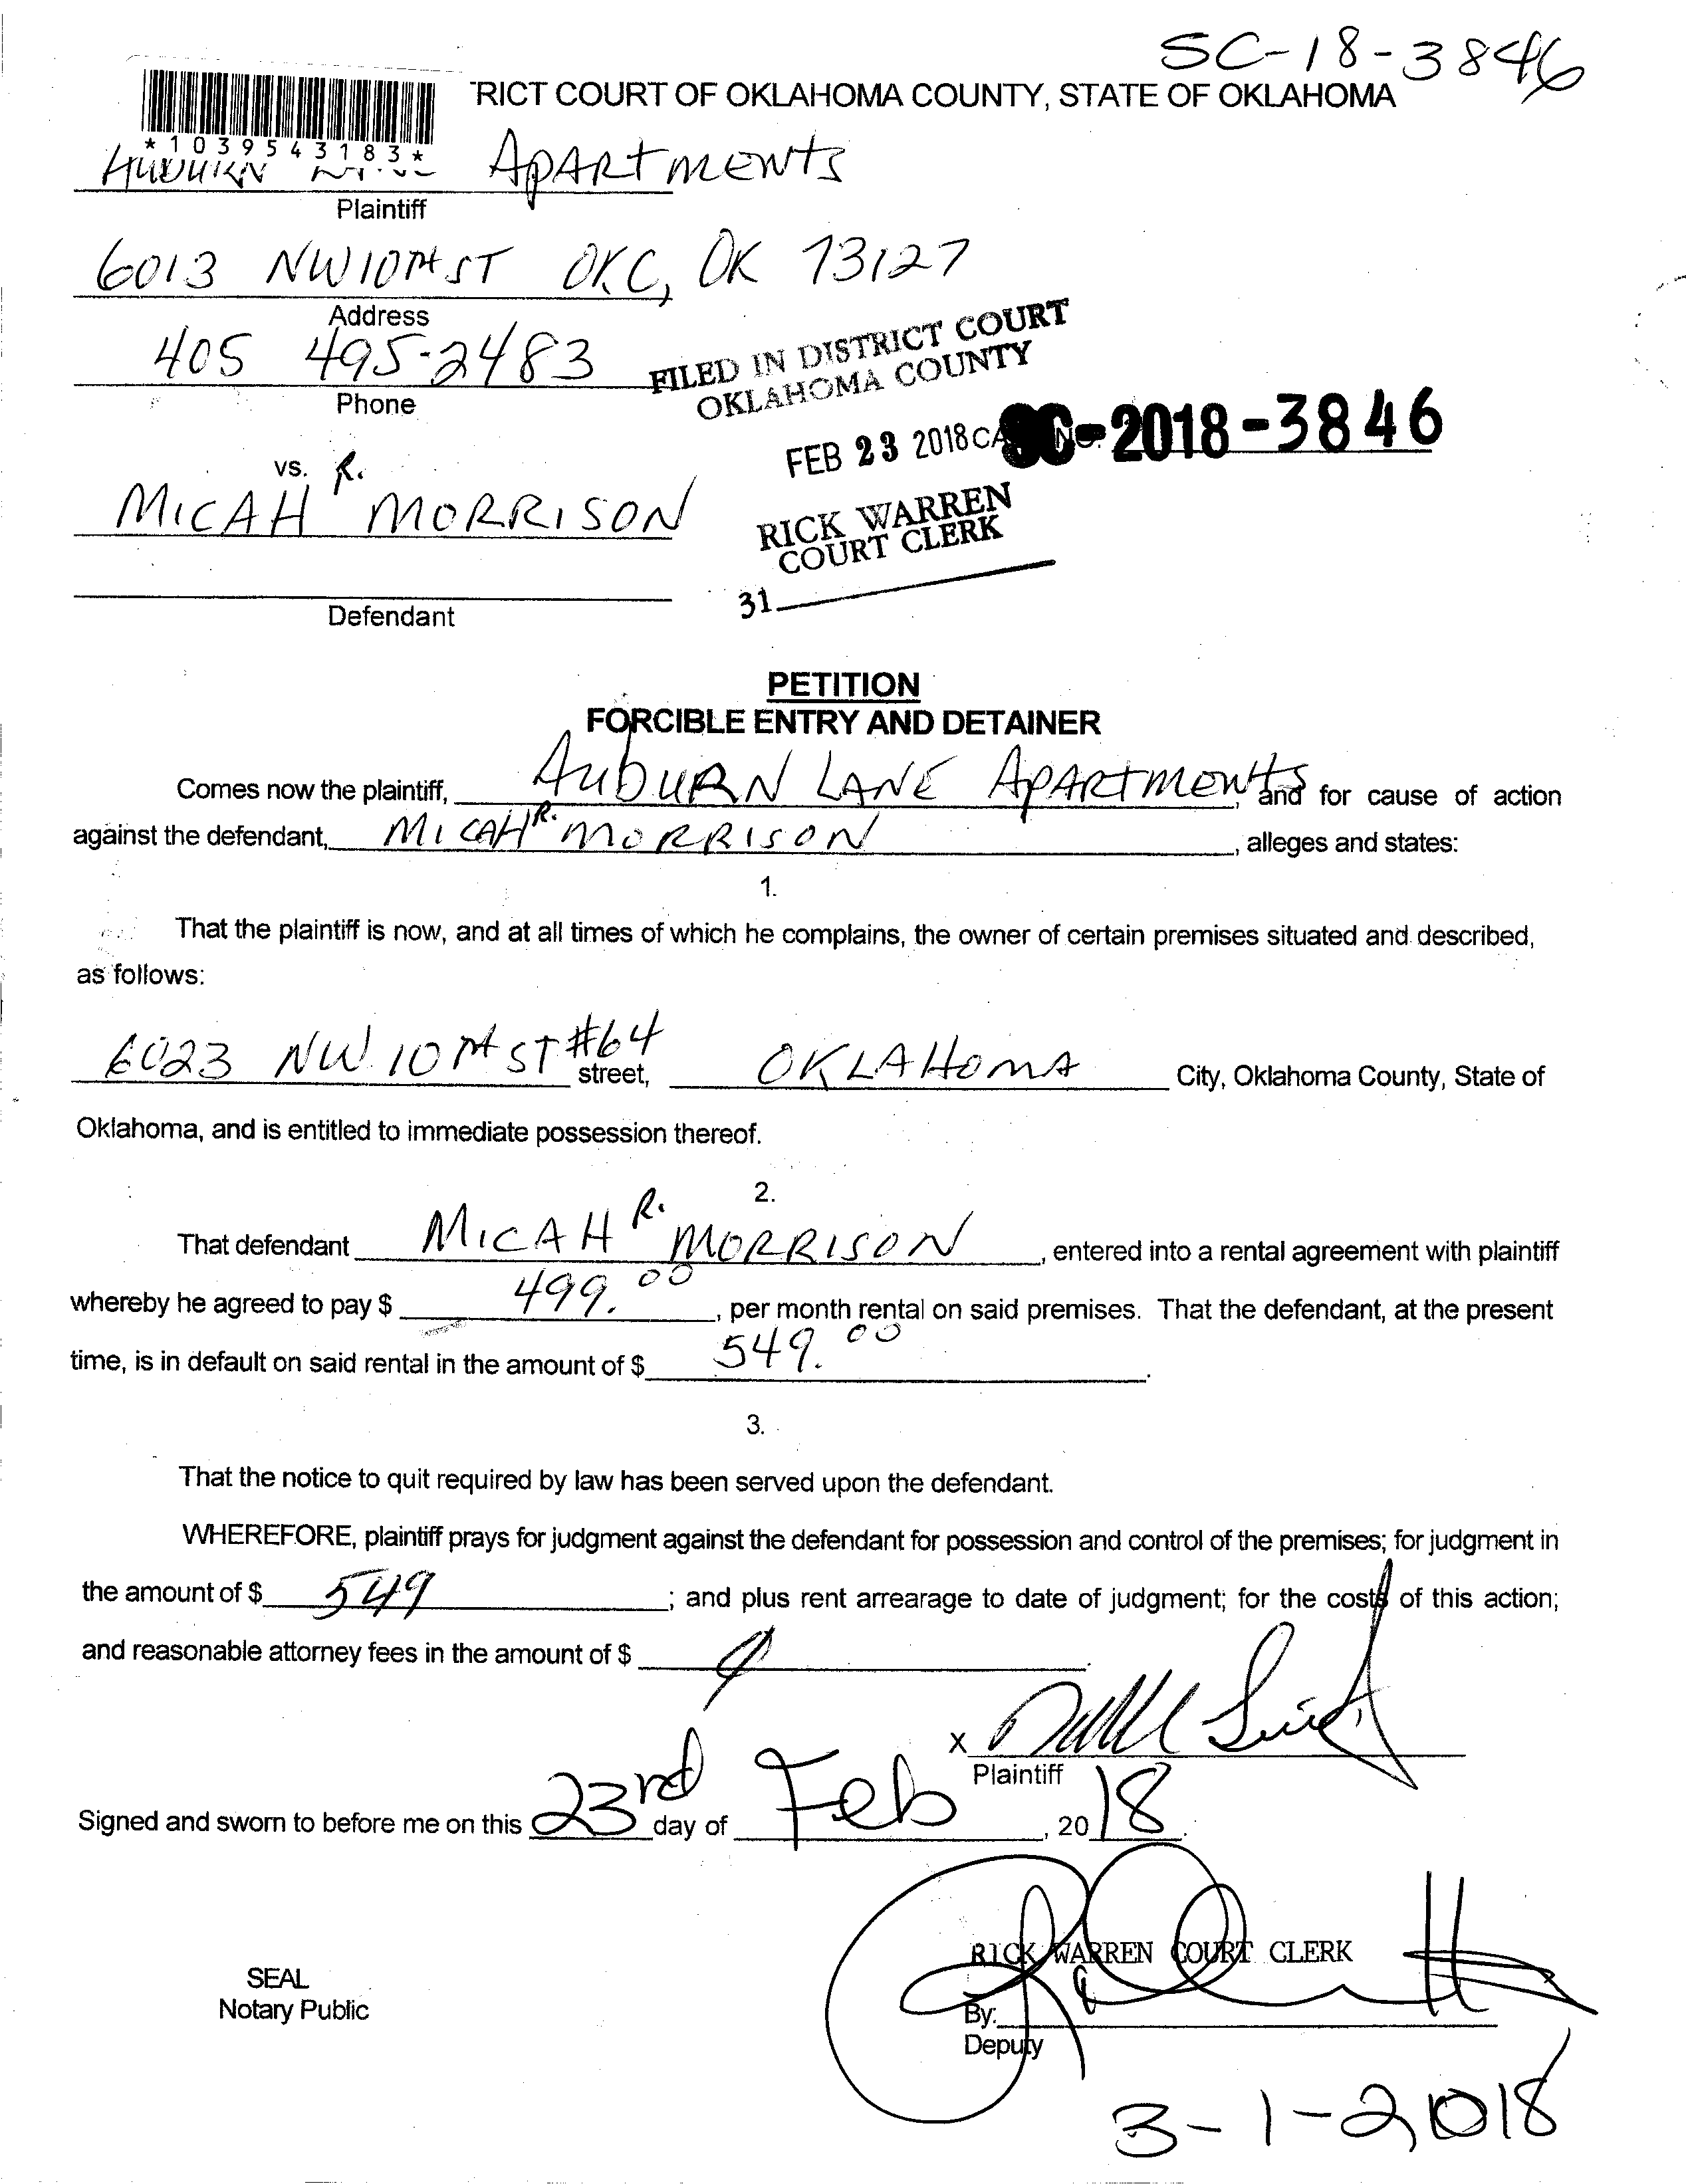 SC-18-3846
RICT COURT OF OKLAHOMA COUNTY, STATE OF OKLAHOMA
*1039543183*
AUBURN Apartments
Plaintiff
6013 NW 10TH ST OKC, OK 73127
Address
405 495-2483
Phone
FILED IN DISTRICT COURT
OKLAHOMA COUNTY
FEB 23 2018
SC-2018-3846
RICK WARREN
COURT CLERK
31
vs.
MICAH R. MORRISON
Defendant
PETITION
FORCIBLE ENTRY AND DETAINER
Comes now the plaintiff, AubURN LANE APARTMENTS, and for cause of action
against the defendant, MICAH R. MORRISON, alleges and states:
1.
That the plaintiff is now, and at all times of which he complains, the owner of certain premises situated and described,
as follows:
6023 NW 10TH ST #64 street, OKLAHOMA City, Oklahoma County, State of
Oklahoma, and is entitled to immediate possession thereof.
2.
That defendant MICAH R. MORRISON, entered into a rental agreement with plaintiff
whereby he agreed to pay $ 499.00, per month rental on said premises. That the defendant, at the present
time, is in default on said rental in the amount of $ 549.00.
3.
That the notice to quit required by law has been served upon the defendant.
WHEREFORE, plaintiff prays for judgment against the defendant for possession and control of the premises; for judgment in
the amount of $ 549; and plus rent arrearage to date of judgment; for the costs of this action;
and reasonable attorney fees in the amount of $
X
Plaintiff
Signed and sworn to before me on this 23rd day of Feb, 2018.
RICK WARREN COURT CLERK
SEAL
Notary Public
By:
Deputy
3-1-2018